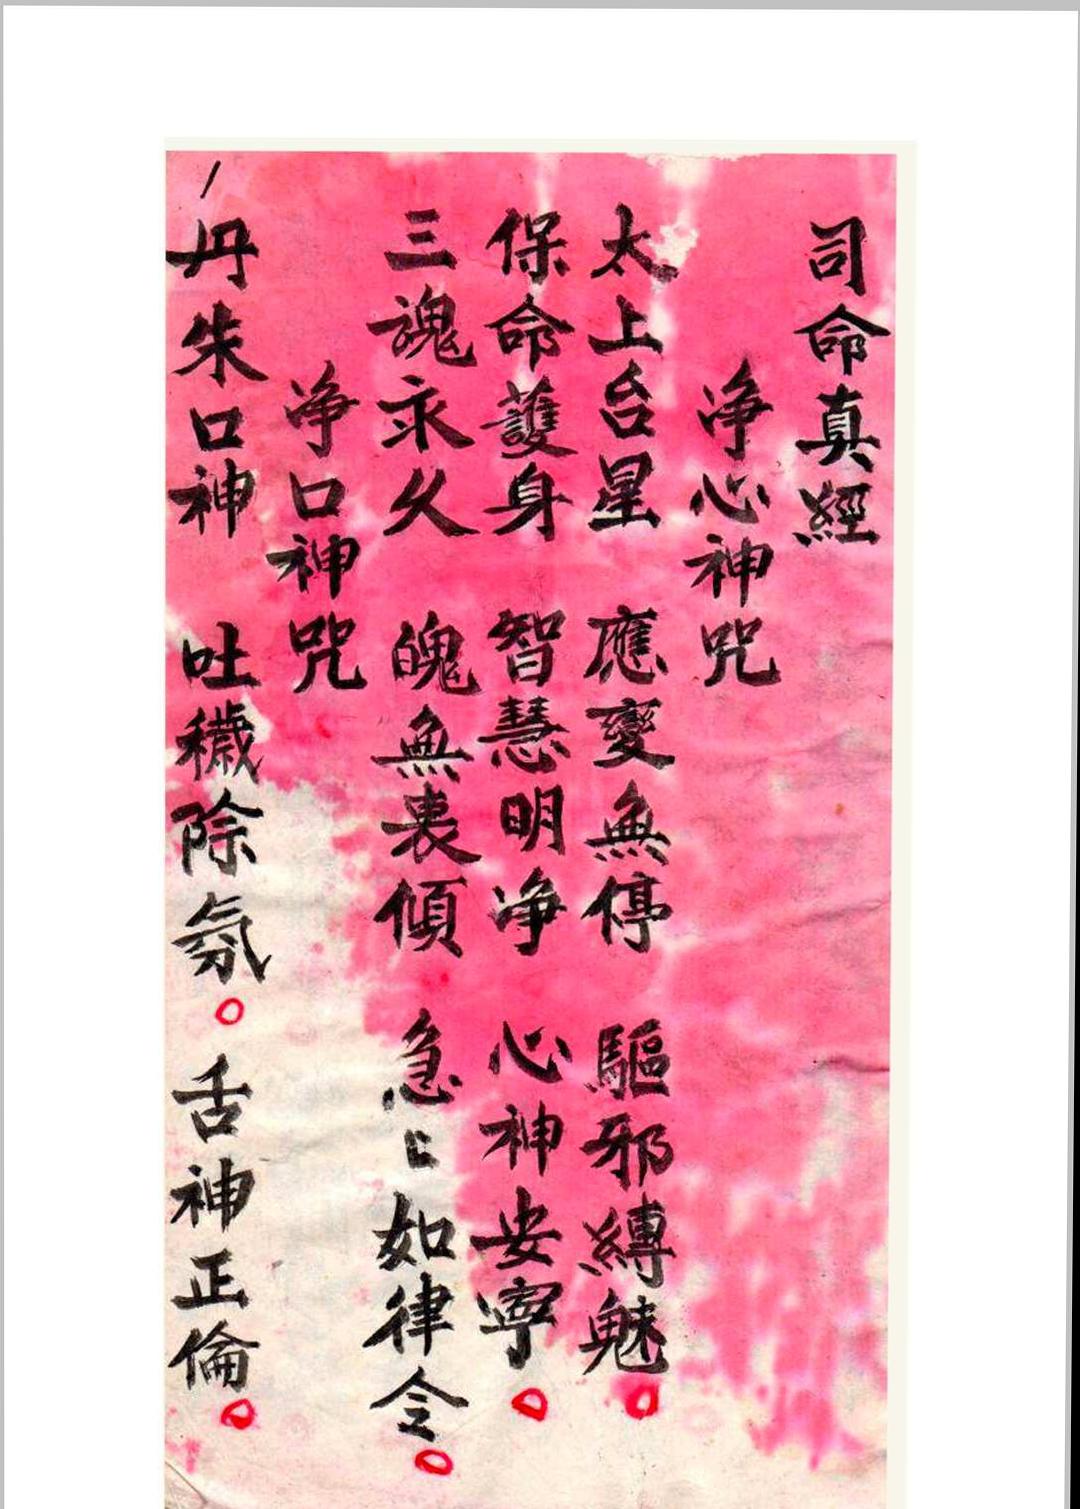 司命真經
净心神咒
太上台星 應變無停 驅邪縛魅。
保命護身 智慧明净 心神安寧。
三魂永久 魄無喪傾 急〻如律令。
净口神咒
丹朱口神 吐穢除氛。舌神正倫。